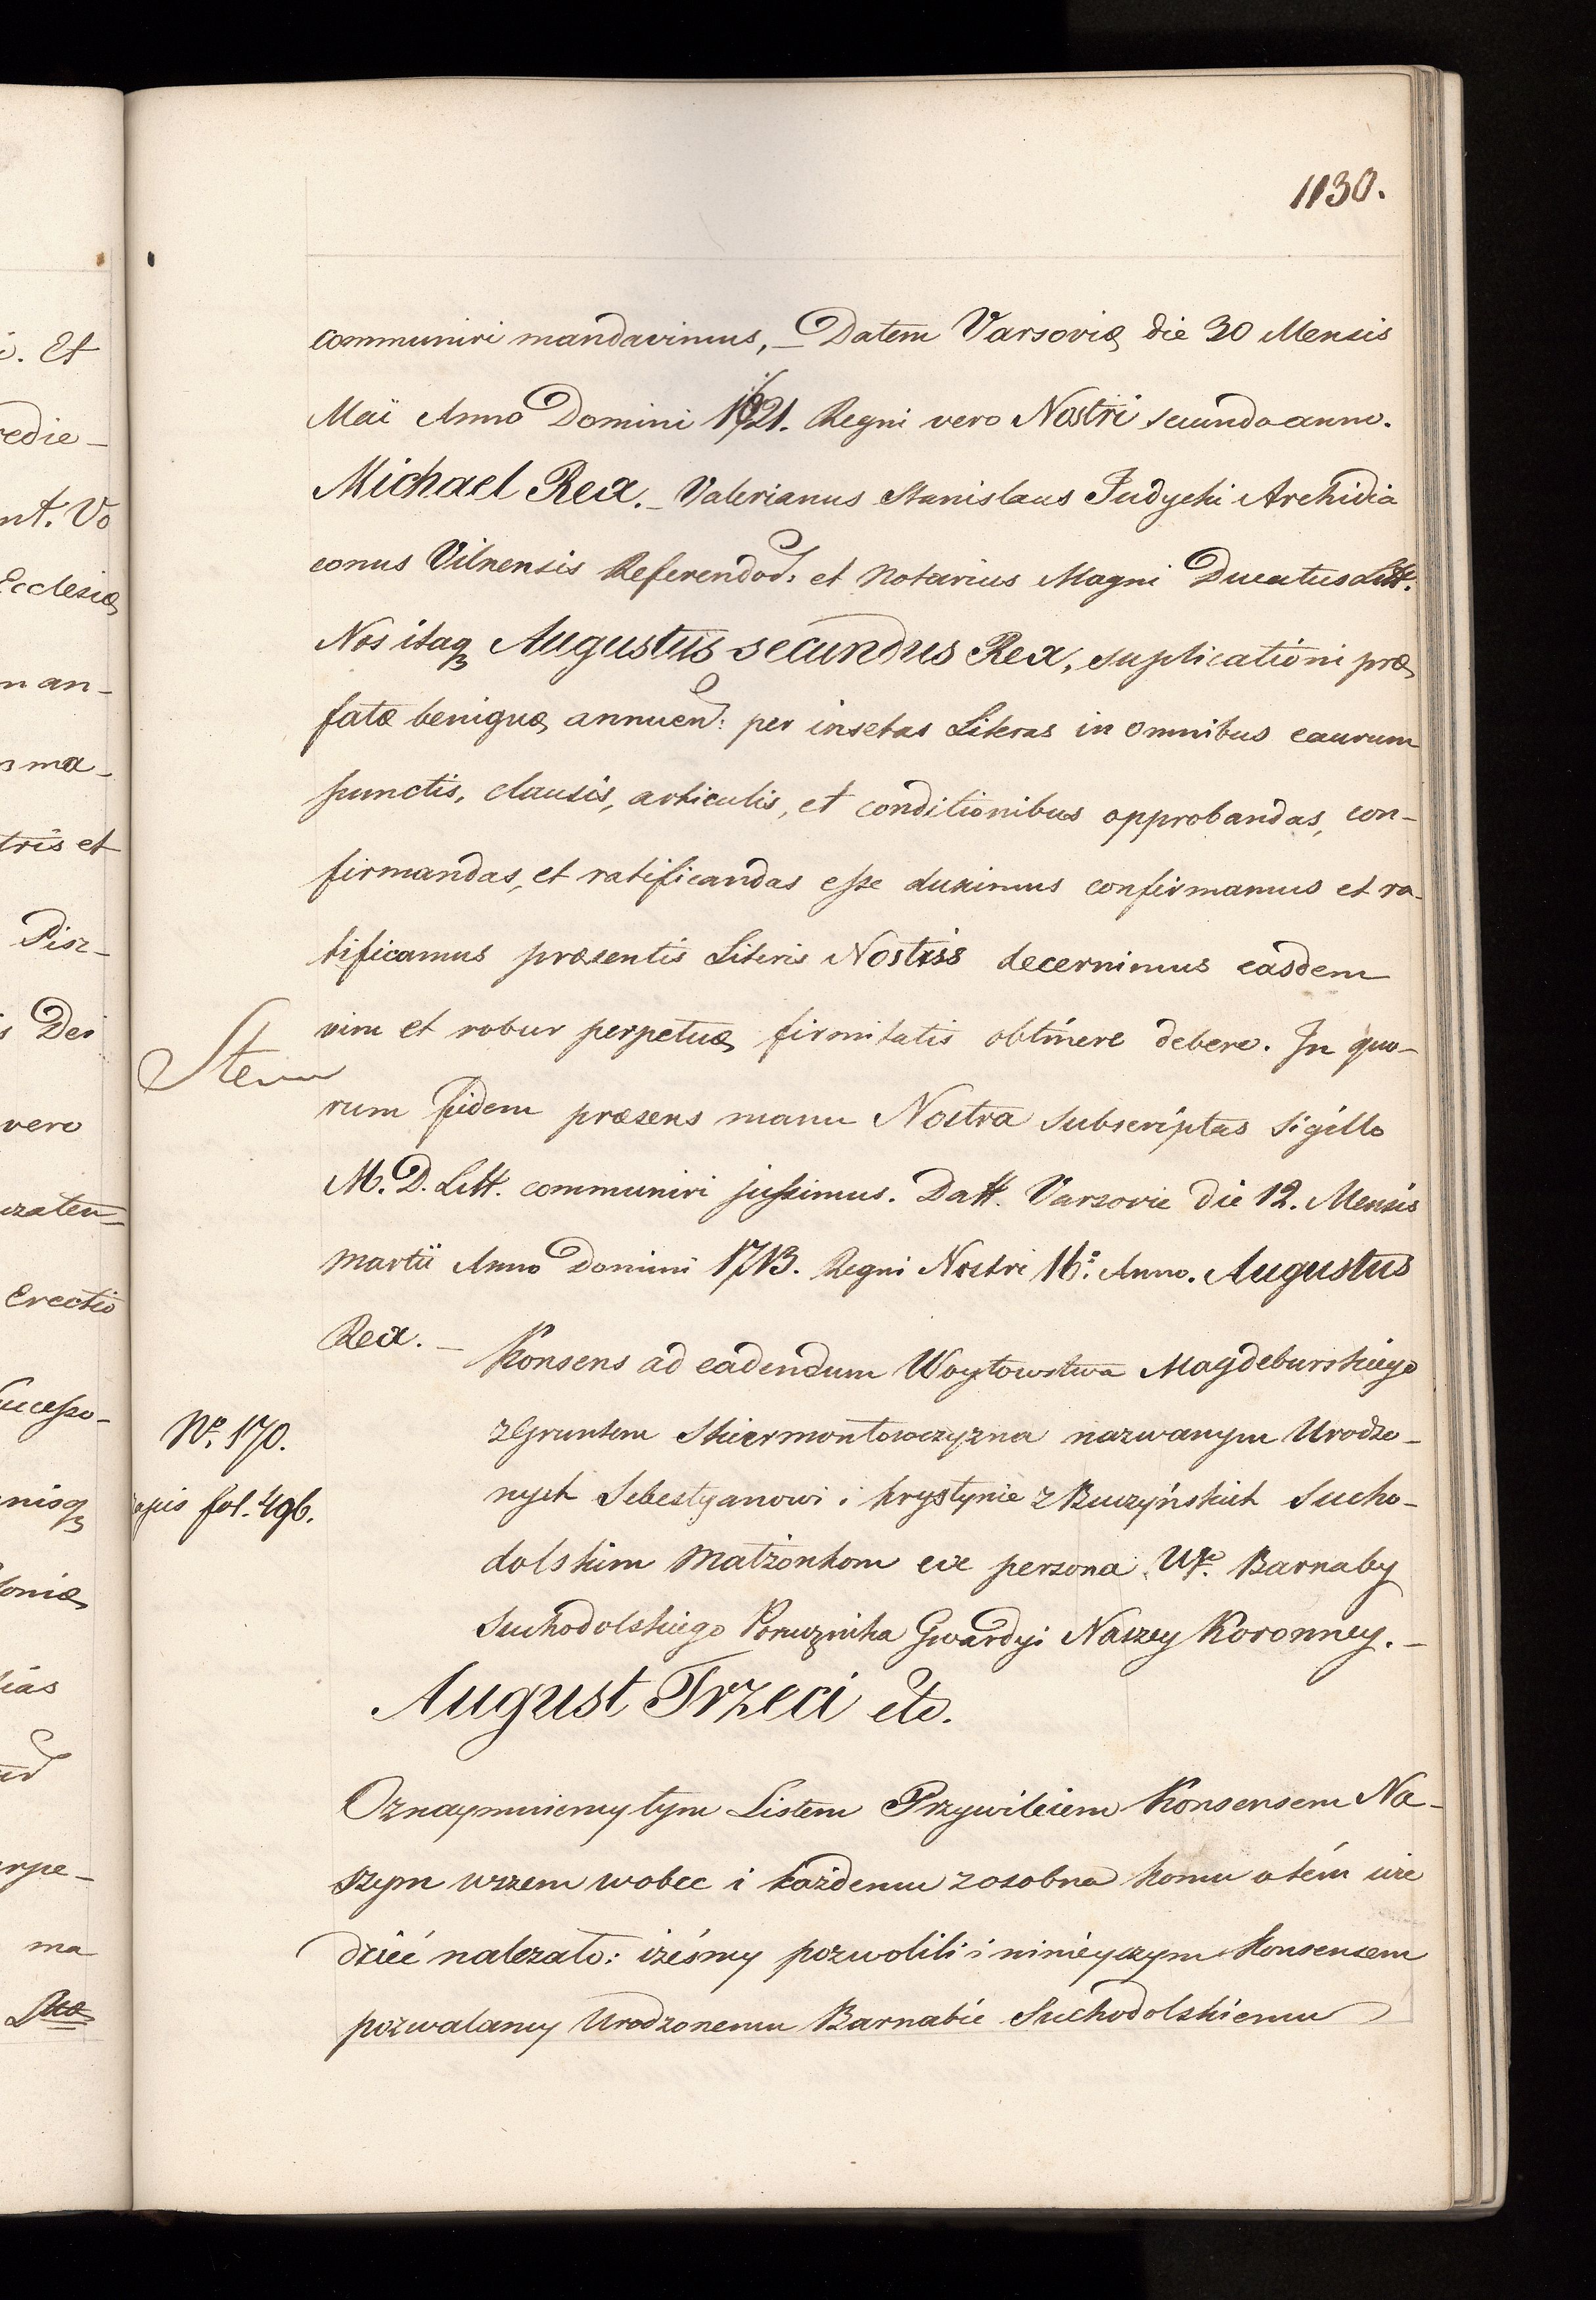 1130.
communiri mandavimus, _ Datem Varsoviæ die 30 Mensis
Maii Anno Domini 1621. Regni vero Nostri secundo anno.
Michael Rex. _ Valerianus Stanislaus Judycki Archidia
conus Vilnensis Referendor: et Notarius Magni Ducatus Litt.
Nos itaq Augustus secundus Rex, suplicationi præ
fatæ benignæ annuend: per insetas Literas in omnibus earum
punctis, clausis, articulis, et conditionibus approbandas, con-
firmandas, et ratificandas esse duximus confirmamus et ra-
tificamus præsentis Literis Nostris decernimus easdem
vim et robur perpetuæ firmitatis obtinere debere. In quo-
rum fidem præsens manu Nostra subscriptas Sigillo
M. D. Litt. communiri jussimus. Datt. Varsovie die 12. Mensis
Martii Anno Domini 1713. Regni Nostri 16: Anno. Augustus
Rex. _
Konsens ad cadendum Woytowstwa Magdeburskiego
z Gruntem Skiermontowczyzna nazwanym Urodzo-
nych Sebestyanowi i Krystynie z Buczyńskich Sucho-
dolskim Małżonkom exe persona Ugo Barnaby
Suchodolskiego Porucznika Gwardyi Naszey Koronney. _
August Trzeci etc.
Oznaymuiemy tym Listem Przywileiem Konsensem Na-
szym wszem wobec i każdemu zosobna komu o tém wie
dzieć należało: iżeśmy pozwolili i ninieyszym Konsensem
pozwalamy Urodzonemu Barnabie Suchodolskiemu
No. 170.
fol. 496.